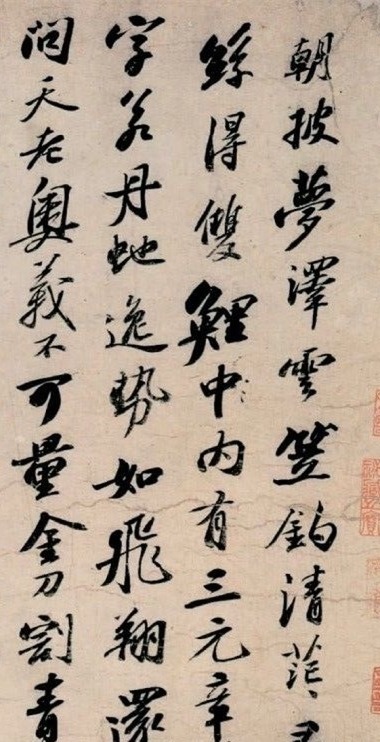 朝披夢澤雲笠釣清茫〻
絲得雙鯉中内有三元章
字若丹虵逸勢如飛翔還
問天老奧義不可量金刀割青